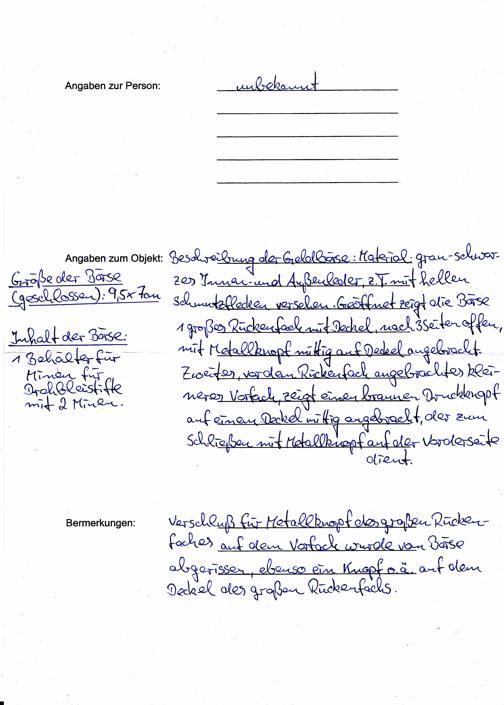 Angaben zur Person: unbekannt
Angaben zum Objekt: Beschreibung der Geldbörse: Material: grau-schwar-
zes Innen- und Außenleder, z.T. mit hellen
Schmutzflecken versehen. Geöffnet zeigt die Börse
1 großes Rückenfach mit Deckel, nach 3 Seiten offen,
mit Metallknopf mittig auf Deckel angebracht.
Zweites, vor dem Rückenfach angebrachtes klei-
neres Vorfach, zeigt einen braunen Druckknopf
auf einem Deckel mittig angebracht, der zum
Schließen mit Metallknopf auf der Vorderseite
dient.
Größe der Börse
(geschlossen): 9,5 x 7 cm
Inhalt der Börse:
1 Behälter für
Minen für
Drehbleistifte
mit 2 Minen.
Bermerkungen: Verschluß für Metallknopf des großen Rücken-
faches auf dem Vorfach wurde von Börse
abgerissen, ebenso ein Knopf o.ä. auf dem
Deckel des großen Rückenfachs.